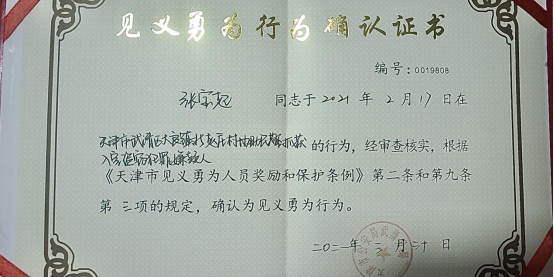 见义勇为行为确认证书
编号：0019808
张宝起 同志于2021年2月17日在
天津市武清区大良镇北
入室盗窃犯罪嫌疑人 的行为，经审查核实，根据
《天津市见义勇为人员奖励和保护条例》第二条和第九条
第三项的规定，确认为见义勇为行为。
二〇二一年三月二十日